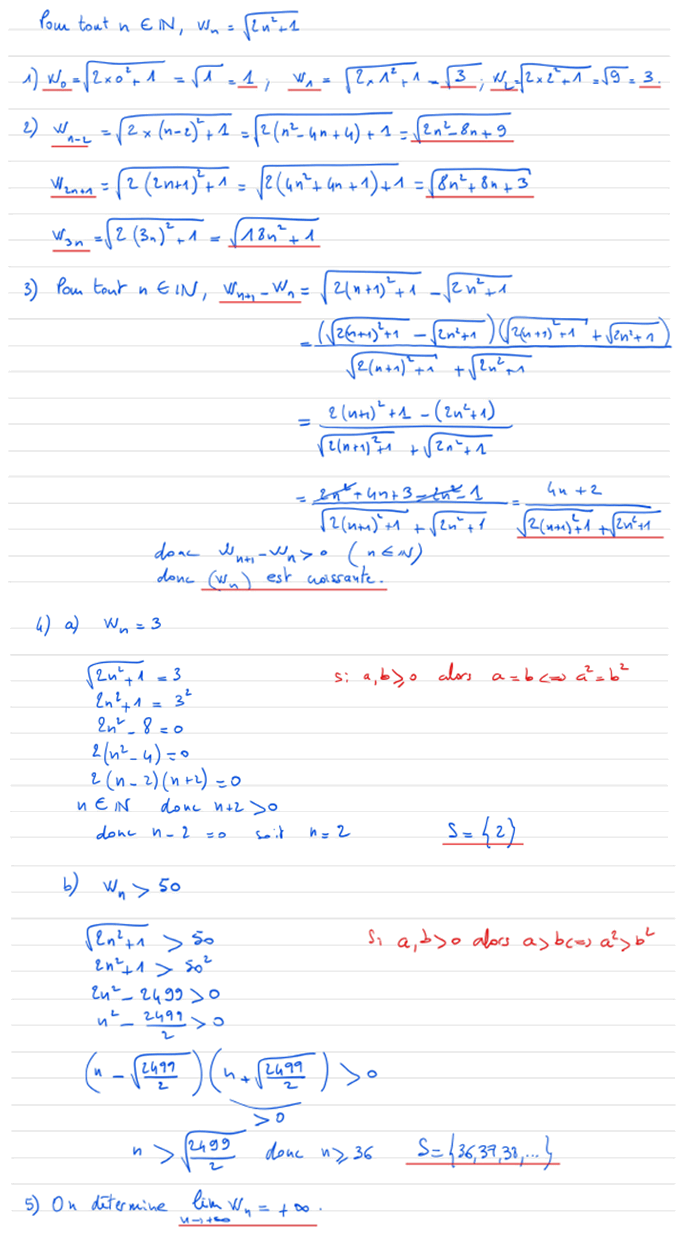 Pour tout n ∈ ℕ, Wₙ = √(2n²+1)
1) W₀ = √(2×0²+1) = √1 = 1 ; W₁ = √(2×1²+1) = √3 ; W₂ = √(2×2²+1) = √9 = 3.
2) Wₙ₋₂ = √(2×(n-2)²+1) = √(2(n²-4n+4)+1) = √(2n²-8n+9)
W₂ₙ₊₁ = √(2(2n+1)²+1) = √(2(4n²+4n+1)+1) = √(8n²+8n+3)
W₃ₙ = √(2(3n)²+1) = √(18n²+1)
3) Pour tout n ∈ ℕ, Wₙ₊₁ - Wₙ = √(2(n+1)²+1) - √(2n²+1)
= (√(2(n+1)²+1) - √(2n²+1))(√(2(n+1)²+1) + √(2n²+1)) / (√(2(n+1)²+1) + √(2n²+1))
= (2(n+1)²+1 - (2n²+1)) / (√(2(n+1)²+1) + √(2n²+1))
= (2n²+4n+3-2n²-1) / (√(2(n+1)²+1) + √(2n²+1)) = (4n+2) / (√(2(n+1)²+1) + √(2n²+1))
donc Wₙ₊₁ - Wₙ > 0 (n ∈ ℕ)
donc (Wₙ) est croissante.
4) a) Wₙ = 3
√(2n²+1) = 3 si a,b ⩾ 0 alors a = b ⟺ a² = b²
2n²+1 = 3²
2n²-8 = 0
2(n²-4) = 0
2(n-2)(n+2) = 0
n ∈ ℕ donc n+2 > 0
donc n-2 = 0 soit n = 2 S = {2}
b) Wₙ > 50
√(2n²+1) > 50 Si a,b > 0 alors a > b ⟺ a² > b²
2n²+1 > 50²
2n²-2499 > 0
n² - 2499/2 > 0
(n - √(2499/2))(n + √(2499/2)) > 0
> 0
n > √(2499/2) donc n ⩾ 36 S = {36,37,38,...}
5) On détermine lim Wₙ = +∞.
n→+∞